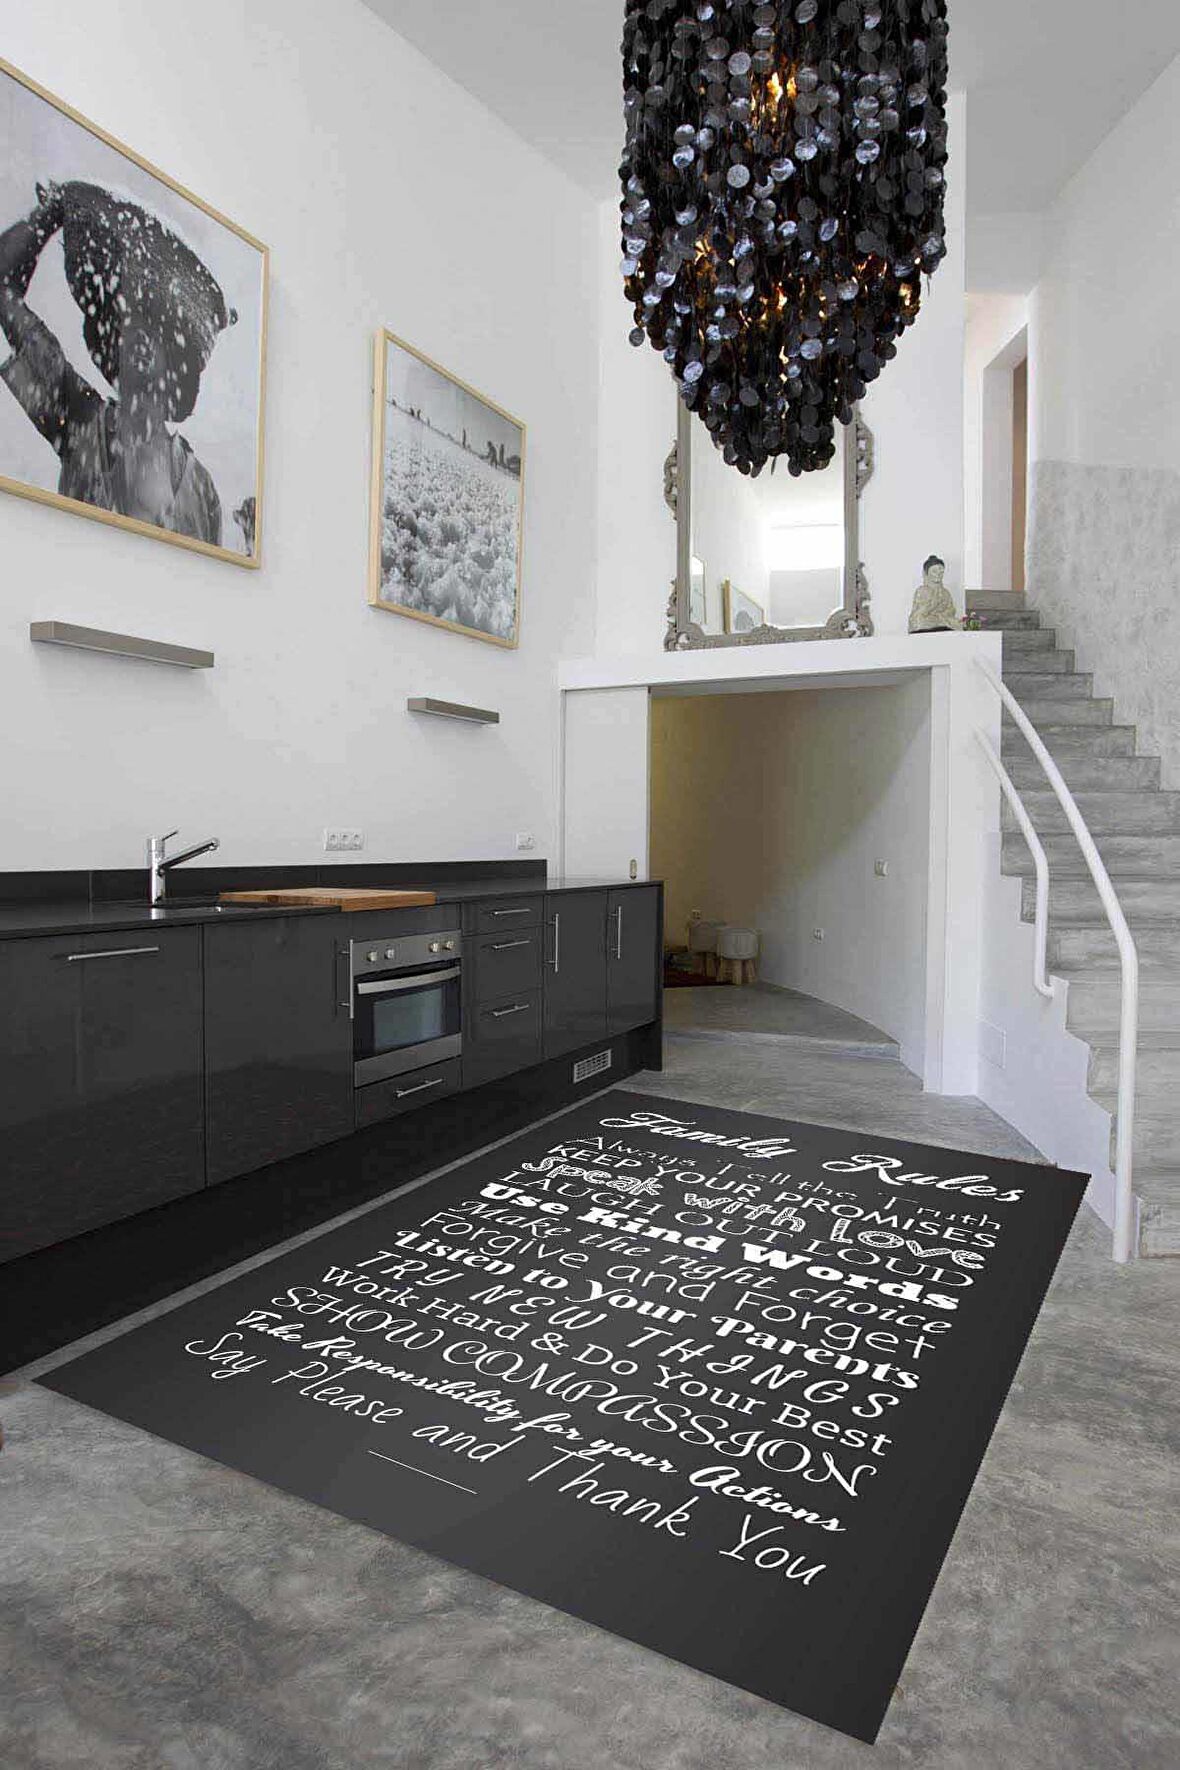 Family Rules
Always Tell the Truth
KEEP YOUR PROMISES
Speak with Love
LAUGH OUT LOUD
Use Kind Words
Make the right choice
Forgive and Forget
Listen to your Parents
TRY NEW THINGS
Work Hard & Do Your Best
SHOW COMPASSION
Take Responsibility for your Actions
Say Please and Thank You